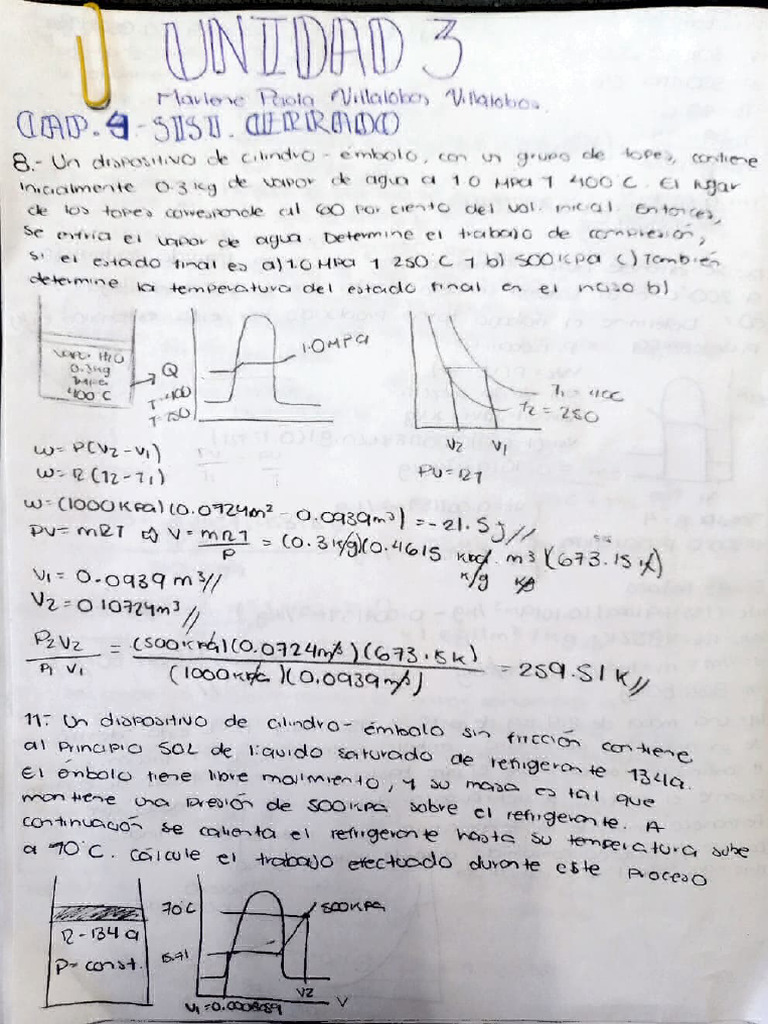 UNIDAD 3
Marlene Paola Villalobos Villalobos.
CAP. 4 - SIST. CERRADO
8.- Un dispositivo de cilindro - émbolo, con un grupo de topes, contiene
inicialmente 0.3 kg de vapor de agua a 1.0 MPa y 400°C. El lugar
de los topes corresponde al 60 por ciento del vol. inicial. Entonces,
se enfría el vapor de agua. Determine el trabajo de compresión,
si el estado final es a) 1.0 MPa y 250 C y b) 500 kpa c) También
determine la temperatura del estado final en el inciso b).
vapor H2O
0.3kg
1MPa
400°C
Q
T=400
T=250
1.0 MPa
T1 400
T2 = 250
V2 V1
w= P(V2-V1)
w= R(T2-T1)
PV=RT
w= (1000 kPa) (0.0724m² - 0.0939m³) = -21.5 J//
PV= mRT ⇨ V= mRT/P = (0.3 kg)(0.4615 kpa. m³/kg K (673.15 K)
V1 = 0.0939 m³//
V2 = 0.10724m³//
P2V2/P1 V1 = (500 kPa)(0.0724m³)(673.15K)/(1000 kPa)(0.0939m³) = 259.51 K//
11.- Un dispositivo de cilindro - émbolo sin fricción contiene
al principio 50L de líquido saturado de refrigerante 134a.
El émbolo tiene libre movimiento, y su masa es tal que
mantiene una presión de 500 kPa sobre el refrigerante. A
continuación se calienta el refrigerante hasta su temperatura sube
a 70°C. cálcule el trabajo efectuado durante este proceso
R-134a
P= const.
70°C
15.71
500KPa
V1=0.0008059
V2
V